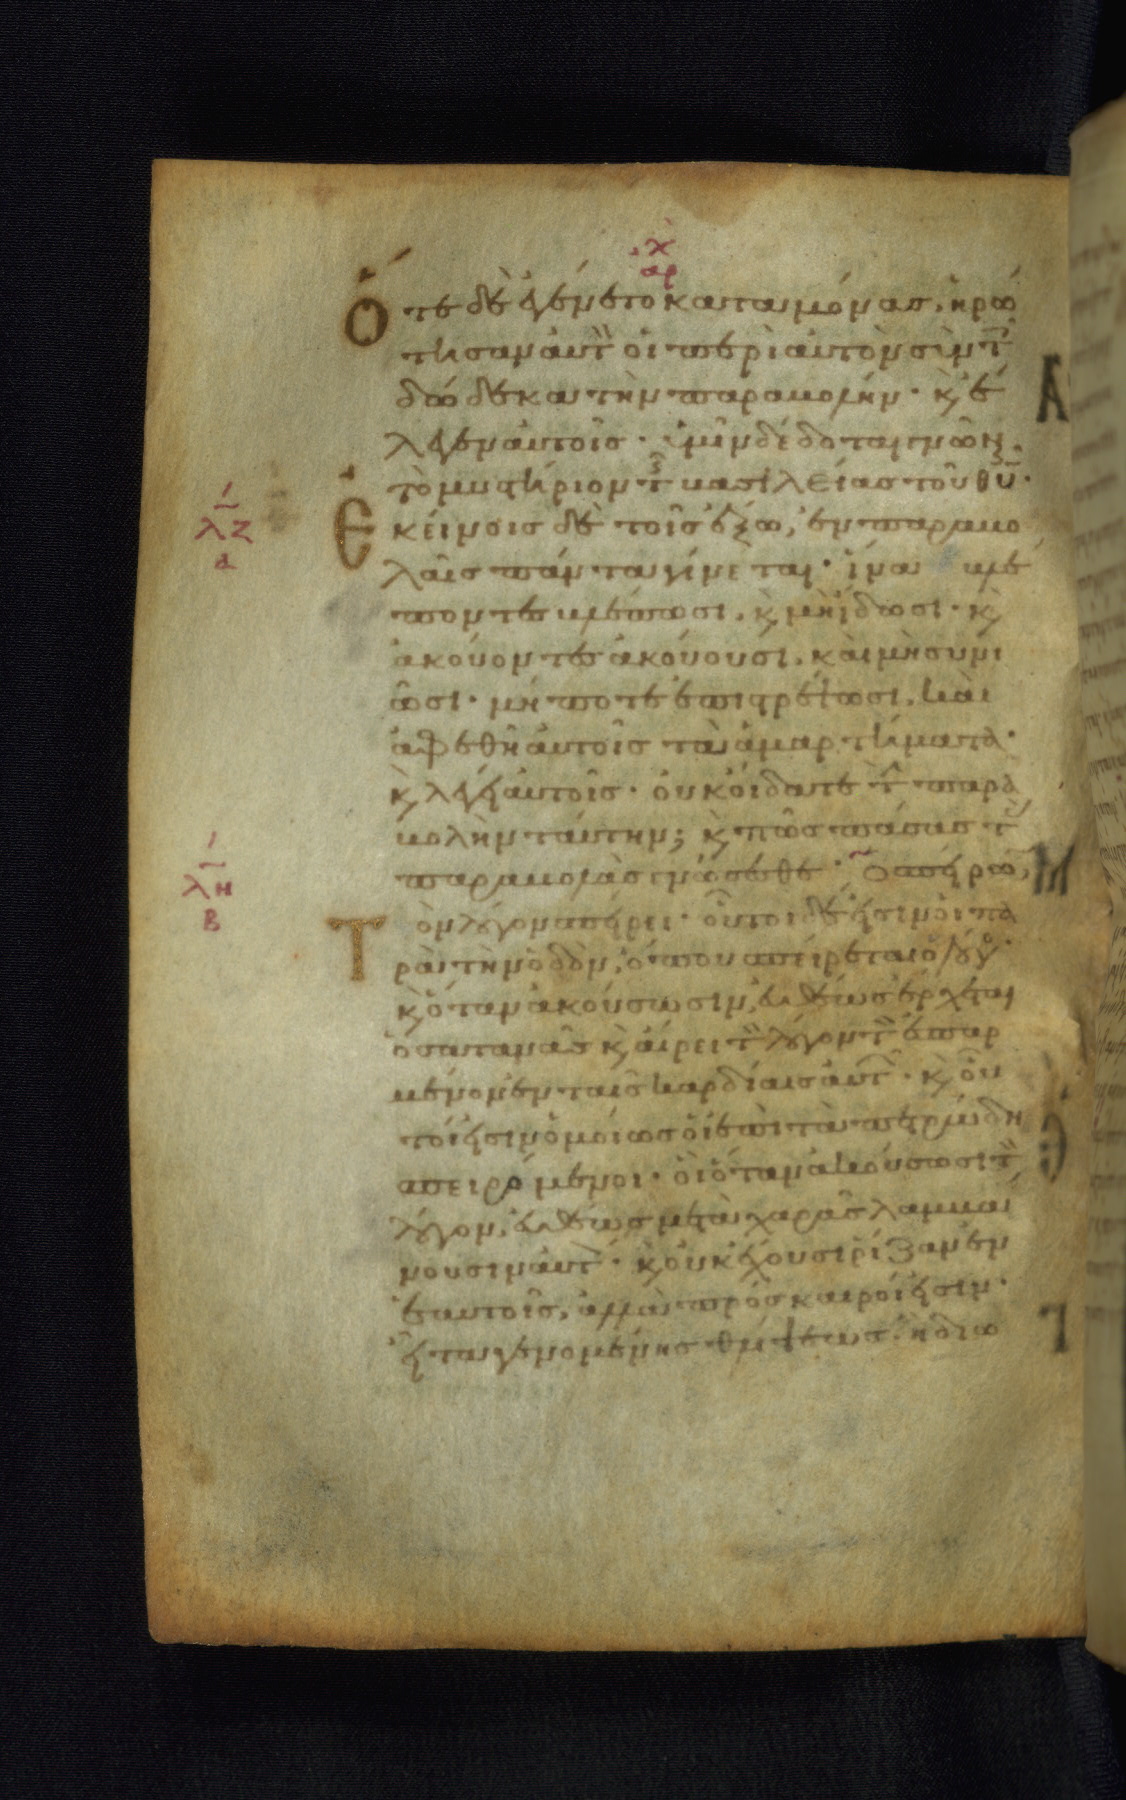 αρχ
Ὅτε δὲ ἐγένετο καταμόνας, ἠρώ
τησαν αὐτὸν οἱ περὶ αὐτὸν σὺν τοῖς
δώδεκα τὴν παραβολήν· κ ἔ
λεγεν αὐτοῖς· ὑμῖν δέδοται γνῶναι
τὸ μυστήριον τῆς βασιλείας τοῦ θυ·
λζ
α
Ἐκείνοις δὲ τοῖς ἔξω, ἐν παραβο
λαῖς πάντα γίνεται· ἵνα βλέ
ποντες βλέπωσι, κ μὴ ἴδωσι· κ
ἀκούοντες ἀκούουσι, καὶ μὴ συνι
ῶσι· μή ποτε ἐπιστρέψωσι, καὶ
ἀφεθῆ αὐτοῖς τὰ ἁμαρτήματα·
κ λέγει αὐτοῖς· οὐκ οἴδατε τὴν παρα
βολὴν ταύτην; κ πῶς πάσας τὰς
λη
β
παραβολὰς γνώσεσθε· Ὁ σπείρων,
Τὸν λόγον σπείρει· οὗτοι δέ εἰσιν οἱ πα
ρὰ τὴν ὁδὸν, ὅπου σπείρεται ὁ λόγος·
κ ὅταν ἀκούσωσιν, εὐθέως ἔρχεται
ὁ σατανᾶς κ αἴρει τὸν λόγον τὸν ἐσπαρ
μένον ἐν ταῖς καρδίαις αὐτῶν· κ οὗ
τοί εἰσιν ὁμοίως οἱ ἐπὶ τὰ πετρώδη
σπειρόμενοι· οἳ ὅταν ἀκούσωσι τὸν
λόγον, εὐθέως μετὰ χαρᾶς λαμβά
νουσιν αὐτὸν· κ οὐκ ἔχουσι ρίζαν ἐν
ἑαυτοῖς, ἀλλὰ πρόσκαιροί εἰσιν·
εἶτα γενομένης θλίψεως ἢ διω